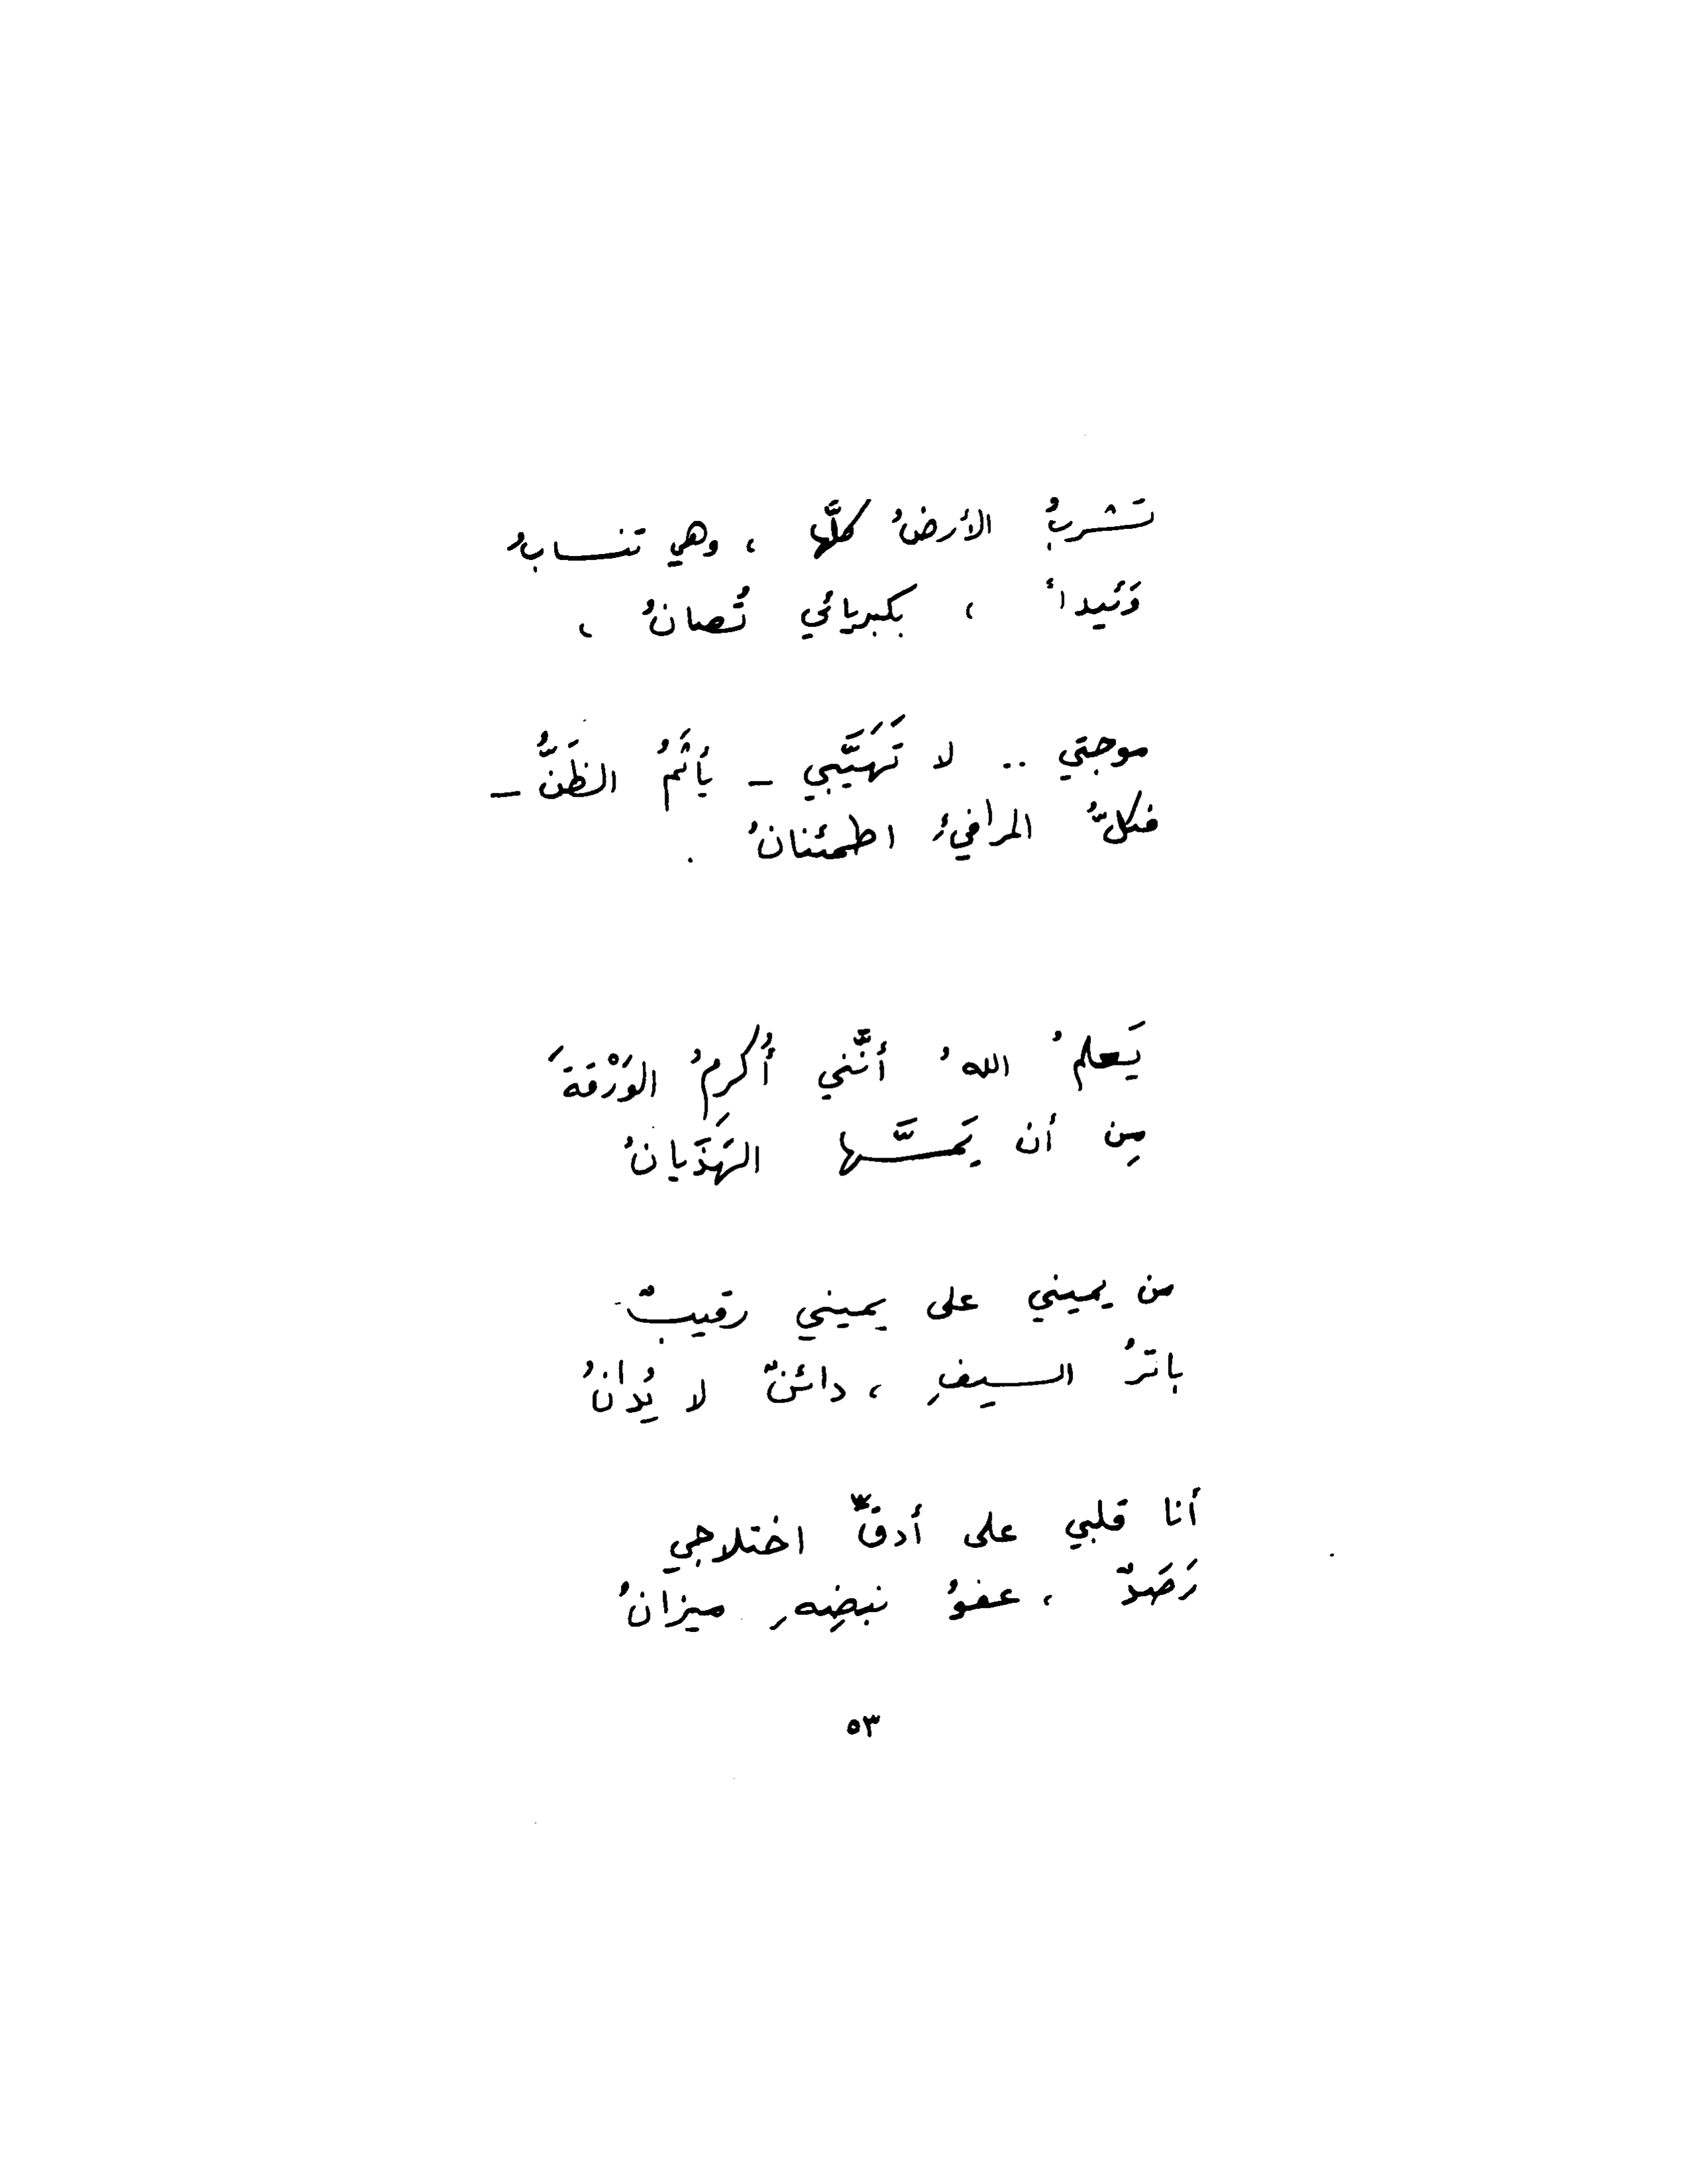 تَشربُ الأرضُ كلَّها ، وهي تنسابُ
وَئيداً ، بكبريائي تُصانُ ،
موجتي .. لا تَهَيَّبي – يأثَمُ الظَنُّ –
فكلُّ المرافيءِ اطمئنانُ .
يَعلمُ اللهُ أنَّني أُكرمُ الوَرْقةَ
مِن أن يَمسَّها الهَذَيانُ
من يميني على يميني رقيبٌ
باترُ السيفِ ، دائنٌ لا يُدانُ
أنا قلبي على أدقِّ اختلاجي
رَصَدٌ ، عفوُ نبضِهِ ميزانُ
٥٣